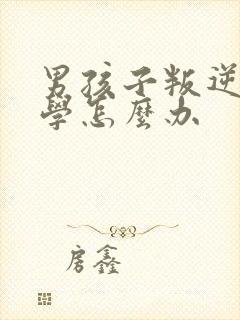 男孩子叛逆
學怎麼办
房鑫